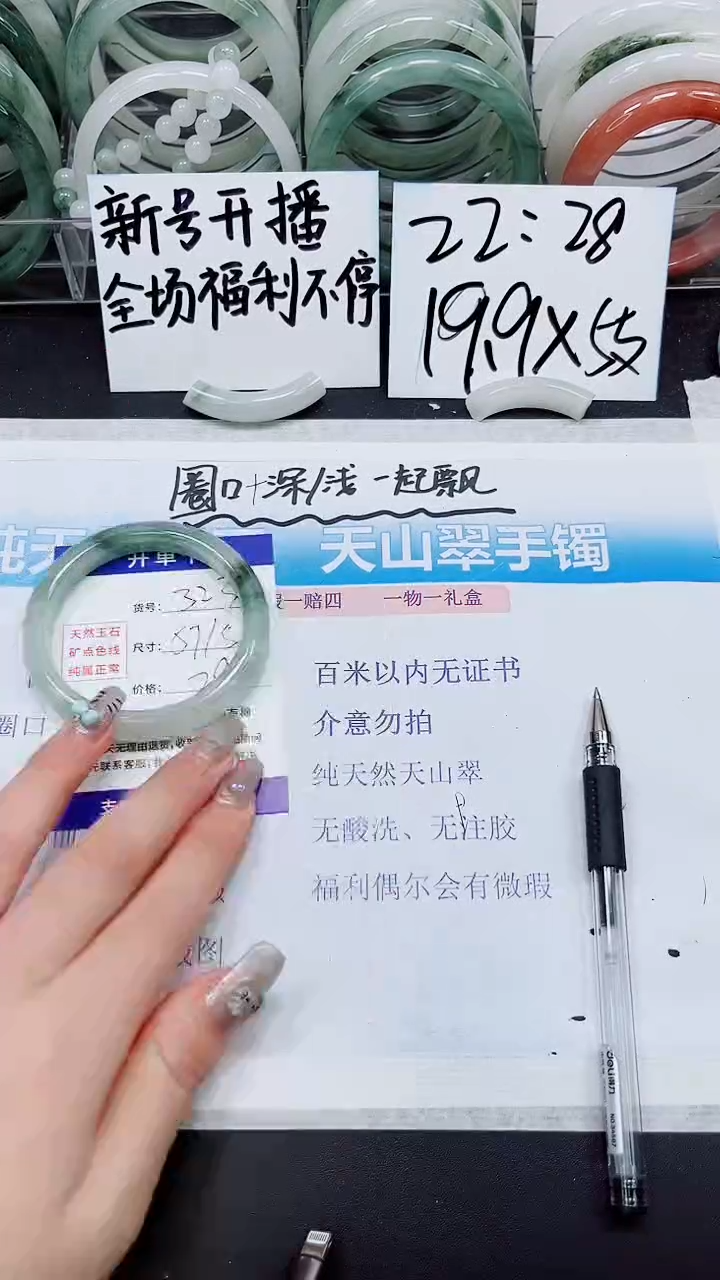 新号开播
全场福利不停
22:28
19.9×5支
圈口+深/浅 一起飘
天山翠手镯
开单卡
假一赔四 一物一礼盒
货号:
天然玉石
矿点色线
纯属正常
尺寸:
价格:
圈口
百米以内无证书
介意勿拍
纯天然天山翠
无酸洗、无注胶
福利偶尔会有微瑕
天无理由退货
联系客服
图
deli得力